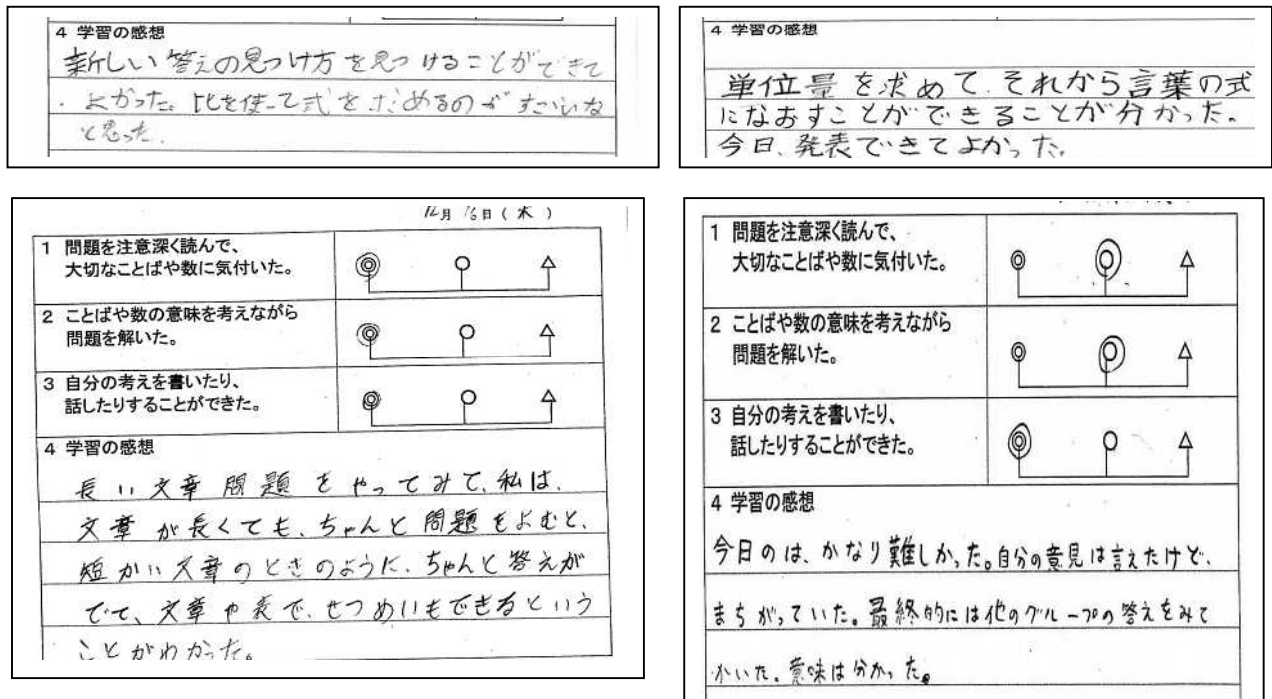 4 学習の感想
新しい答えの見つけ方を見つけることができて
よかった。比を使って式を求めるのがすごいな
と思った。
4 学習の感想
単位量を求めて、それから言葉の式
になおすことができることが分かった。
今日、発表できてよかった。
12月16日(木)
1 問題を注意深く読んで、
大切なことばや数に気付いた。
◎ ○ △
2 ことばや数の意味を考えながら
問題を解いた。
◎ ○ △
3 自分の考えを書いたり、
話したりすることができた。
◎ ○ △
4 学習の感想
長い文章問題をやってみて、私は、
文章が長くても、ちゃんと問題をよむと、
短かい文章のときのように、ちゃんと答えが
でて、文章や表で、せつめいもできるという
ことがわかった。
1 問題を注意深く読んで、
大切なことばや数に気付いた。
◎ ○ △
2 ことばや数の意味を考えながら
問題を解いた。
◎ ○ △
3 自分の考えを書いたり、
話したりすることができた。
◎ ○ △
4 学習の感想
今日のは、かなり難しかった。自分の意見は言えたけど、
まちがっていた。最終的には他のグループの答えをみて
かいた。意味は分かった。